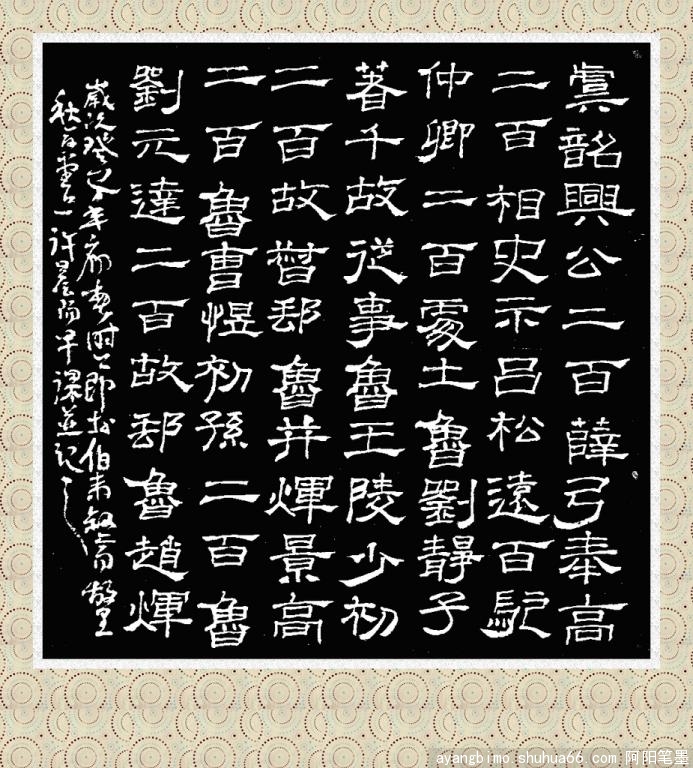 虞韶興公二百薛弓奉高
二百相史示呂松遠百駝
仲卿二百處土魯劉靜子
著千故從事魯王陵少初
二百故督郵魯幷煇景高
二百魯曹煜初孫二百魯
劉元達二百故郵魯趙煇
歲次癸巳年
秋月
早課並記之
ayangbimo.shuhua66.com 阿阳笔墨